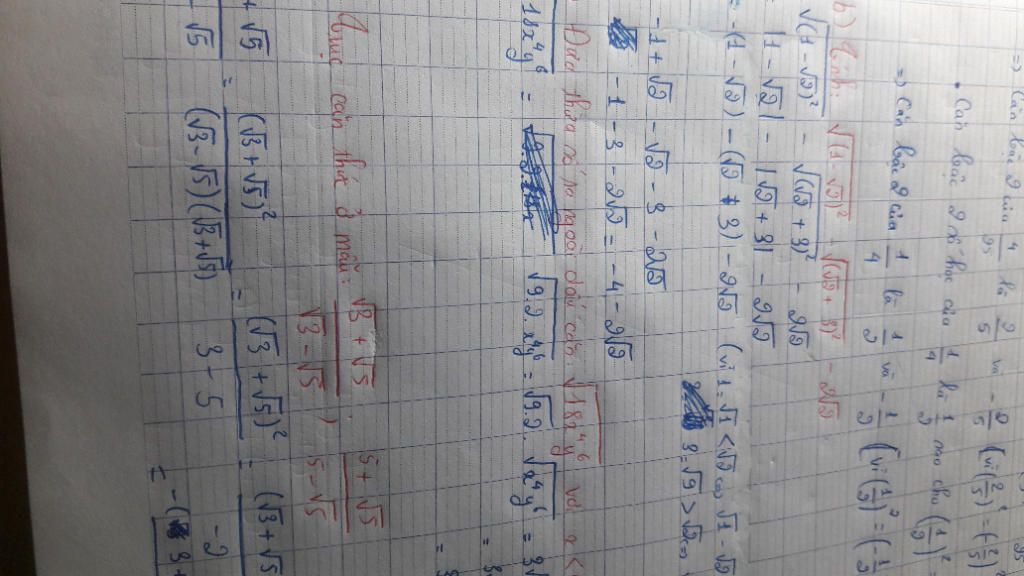 => Căn bậc 2 của 4/25 là 2/5 và -2/5 (vì (2/5)² = (-2/5)²
• Căn bậc 2 số học của 1/4 là 1/2 sao cho (1/2)² =
=> Căn bậc 2 của 1/4 là 1/2 và -1/2 (vì (1/2)² = (-1/2
b) Tính: √(1-√2)² - √(√2+3)² - 2√2
√(1-√2)² - √(√2+3)² - 2√2
= |1-√2| - |√2+3| - 2√2
= -(1-√2) - (√2+3) - 2√2 (vì 1 = √1 < √2 => √1 - √2
3 = √9 > √2 =>
-1+√2 - √2 - 3 - 2√2
-1 - 3 - 2√2 = -4 - 2√2
Đưa thừa số ra ngoài dấu căn: √18x⁴y⁶ với x <
18x⁴y⁶ = √9.2.x⁴y⁶ = √9.2.√x⁴y⁶ = 3√
= 3
=
thức ở mẫu: (√3+√5)/(√3-√5) ; (5+√5)/(5-√5)
+√5/-√5 = (√3+√5)²/((√3-√5)(√3+√5)) = (√3+√5)²/(3-5) = (√3+√5/-2
= -(3+